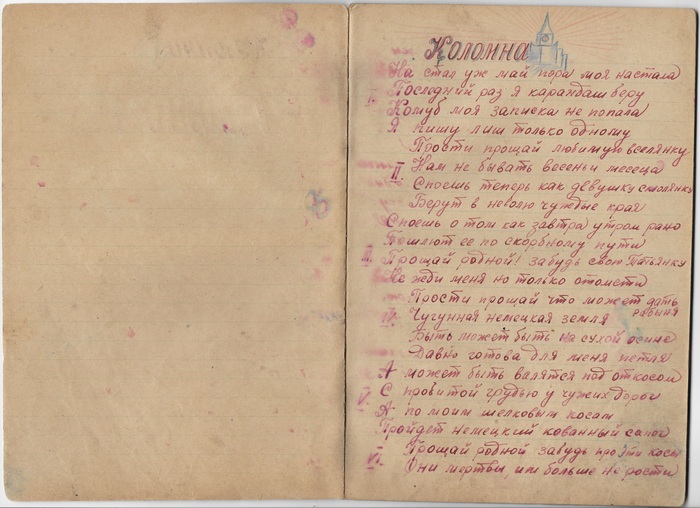 Коломна
На стал уж май пора моя настала
I. Последний раз я карандаш беру
Комуб моя записка не попала
Я пишу лиш только одному
Прости прощай любимую вселянку
II. Нам не бывать весеньи месеца
Споешь теперь как девушку смолянку
Берут в неволю чуждые края
Споешь о том как завтра утром рано
Пошлют ее по скорбному пути
III. Прощай родной! забудь свою Татьянку
Не жди меня но только отомсти
Прости прощай что может дать рабыня
IV. Чугунная немецкая земля
Быть может быть на сухой осине
Давно готова для меня петля
А может быть валятся под откосом
V. С провитой грудью у чужих дорог
А по моим шелковым косам
Пройдет немецкий кованный сапог
VI. Прощай родной забудь про эти косы
Они мертвы им больше не рости